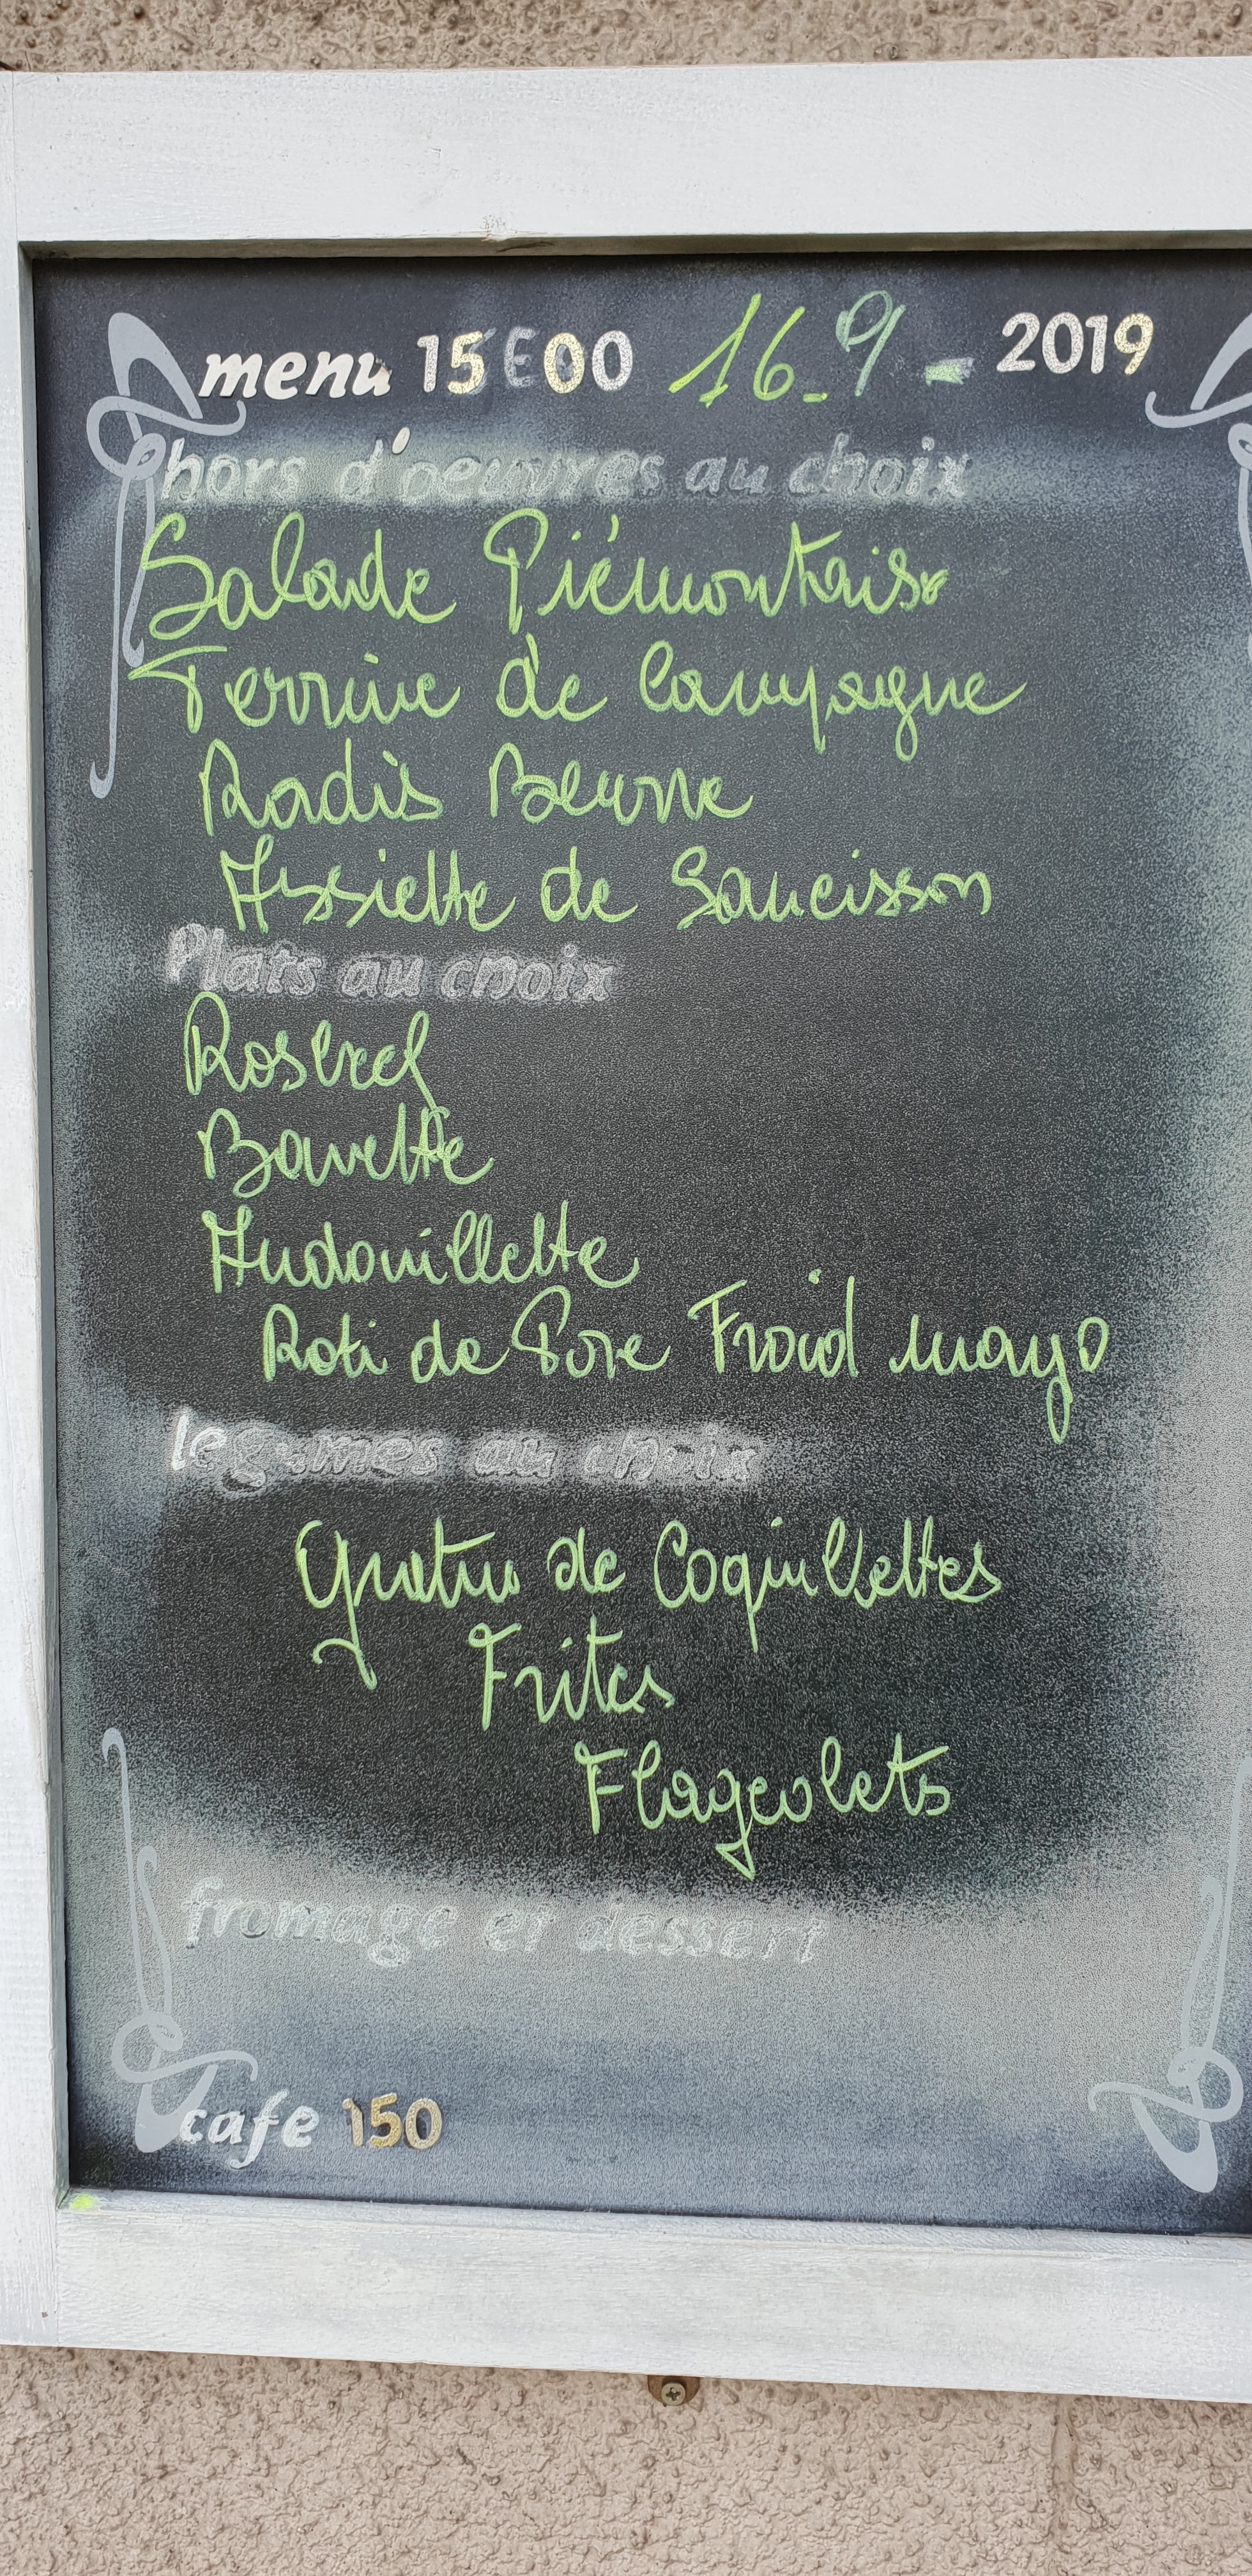 menu 15E00 16_9 - 2019
hors d'oeuvres au choix
Salade Piémontaise
Terrine de Campagne
Radis Beurre
Assiette de Saucisson
Plats au choix
Rosbeef
Bavette
Andouillette
Roti de Porc Froid mayo
legumes au choix
gratin de Coquillettes
Frites
Flageolets
fromage et dessert
cafe 150